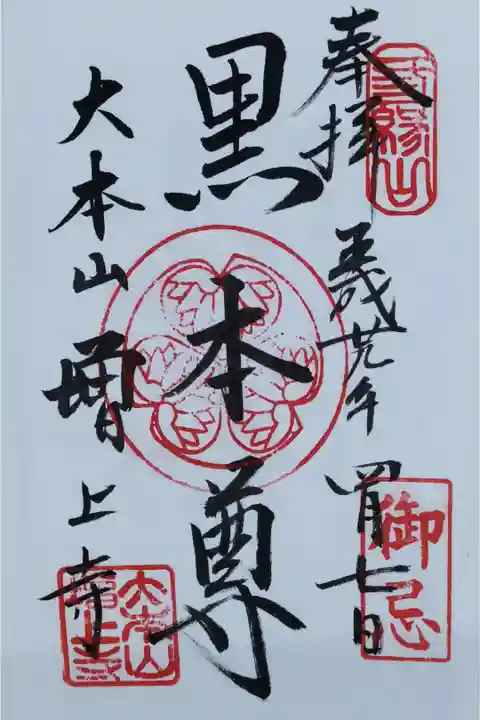 奉拝
三縁山
平成廿九年
四月七日
御忌
黒本尊
大本山
増上寺
大本山
増上寺